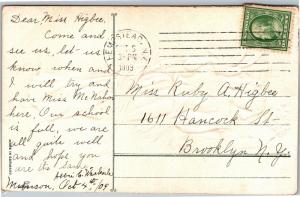 Dear Miss Higbee.
Come and
see us, let us
know when and
I will try and
have Miss McNahon
here. Our school
is full, we are
all quite well
and hope you
are its same
Oct 4th, 09
1909
Miss Ruby A. Higbee
1611 Hancock St.
Brooklyn N.Y.